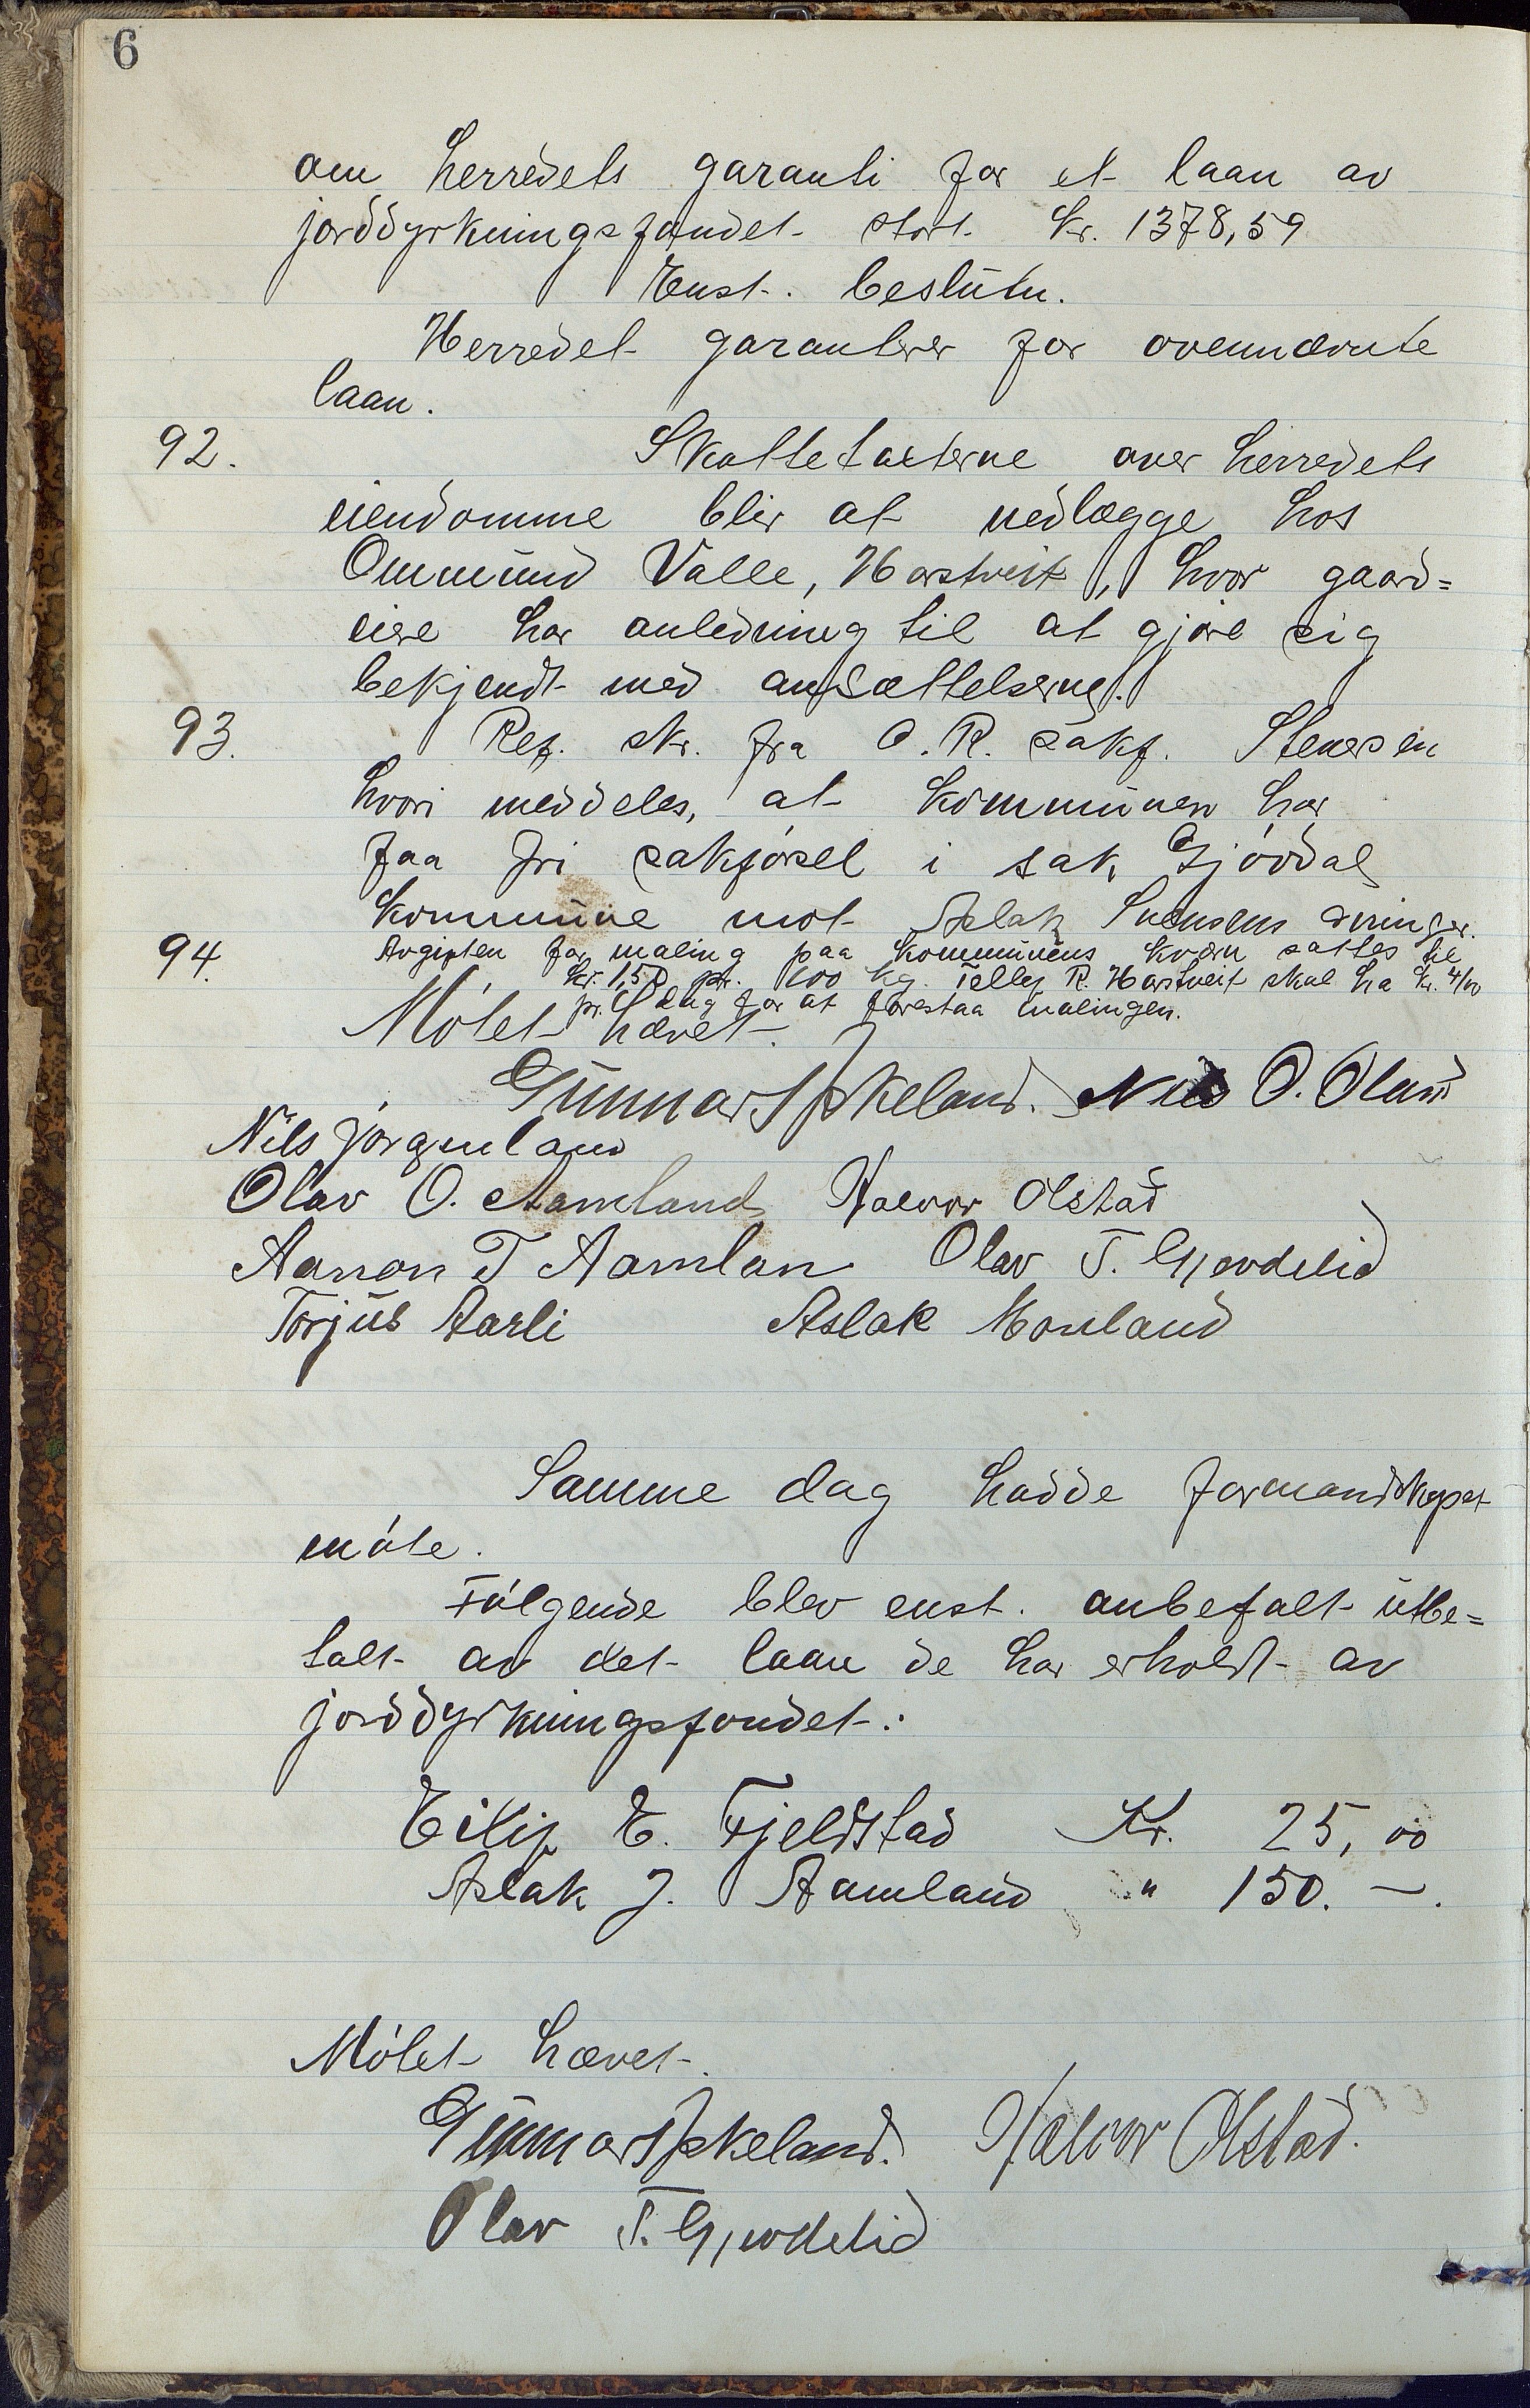 6
om herredets garanti for et laan av
jorddyrkningsfondet stort kr. 1378,59
Enst. beslutn.
Herredet garanterer for ovennævnte
laan.
92. Skattetaksterne over herredets
eiendomme blir at nedlægge hos
Ommund Valle, Harstveit, hvor gaard=
eiere har anledning til at gjøre sig
bekjendt med ansættelserne.
93. Ref. skr. fra O.R. sakf. Stenersen
hvori meddeles, at kommunen har
faa fri sakførsel i sak Gjøvdal
kommune mot Aslak Svensens arvinger.
94. Avgiften for maling paa kommunens kværn sattes til
kr. 1,50 pr. 100 kg. Tellef R. Harstveit skal ha kr. 4/00
pr. dag for at forestaa malingen.
Møtet hævet.
Gunnar Askeland. Nils O. Øland
Nils Jørgenland
Olav O. Aamland Halvor Olstad
Aanon T Aamlan Olav T. Gjøvdelid
Torjus Aarli Aslak Mouland
Samme dag hadde formandskapet
møte.
Følgende blev enst. anbefalt utbe=
talt av det laan de har erholdt av
jorddyrkningsfondet:
Eilif E. Fjeldstad Kr. 25,00
Aslak J. Aamland " 150. —.
Møtet hævet.
Gunnar Askeland. Halvor Olstad.
Olav T. Gjøvdelid